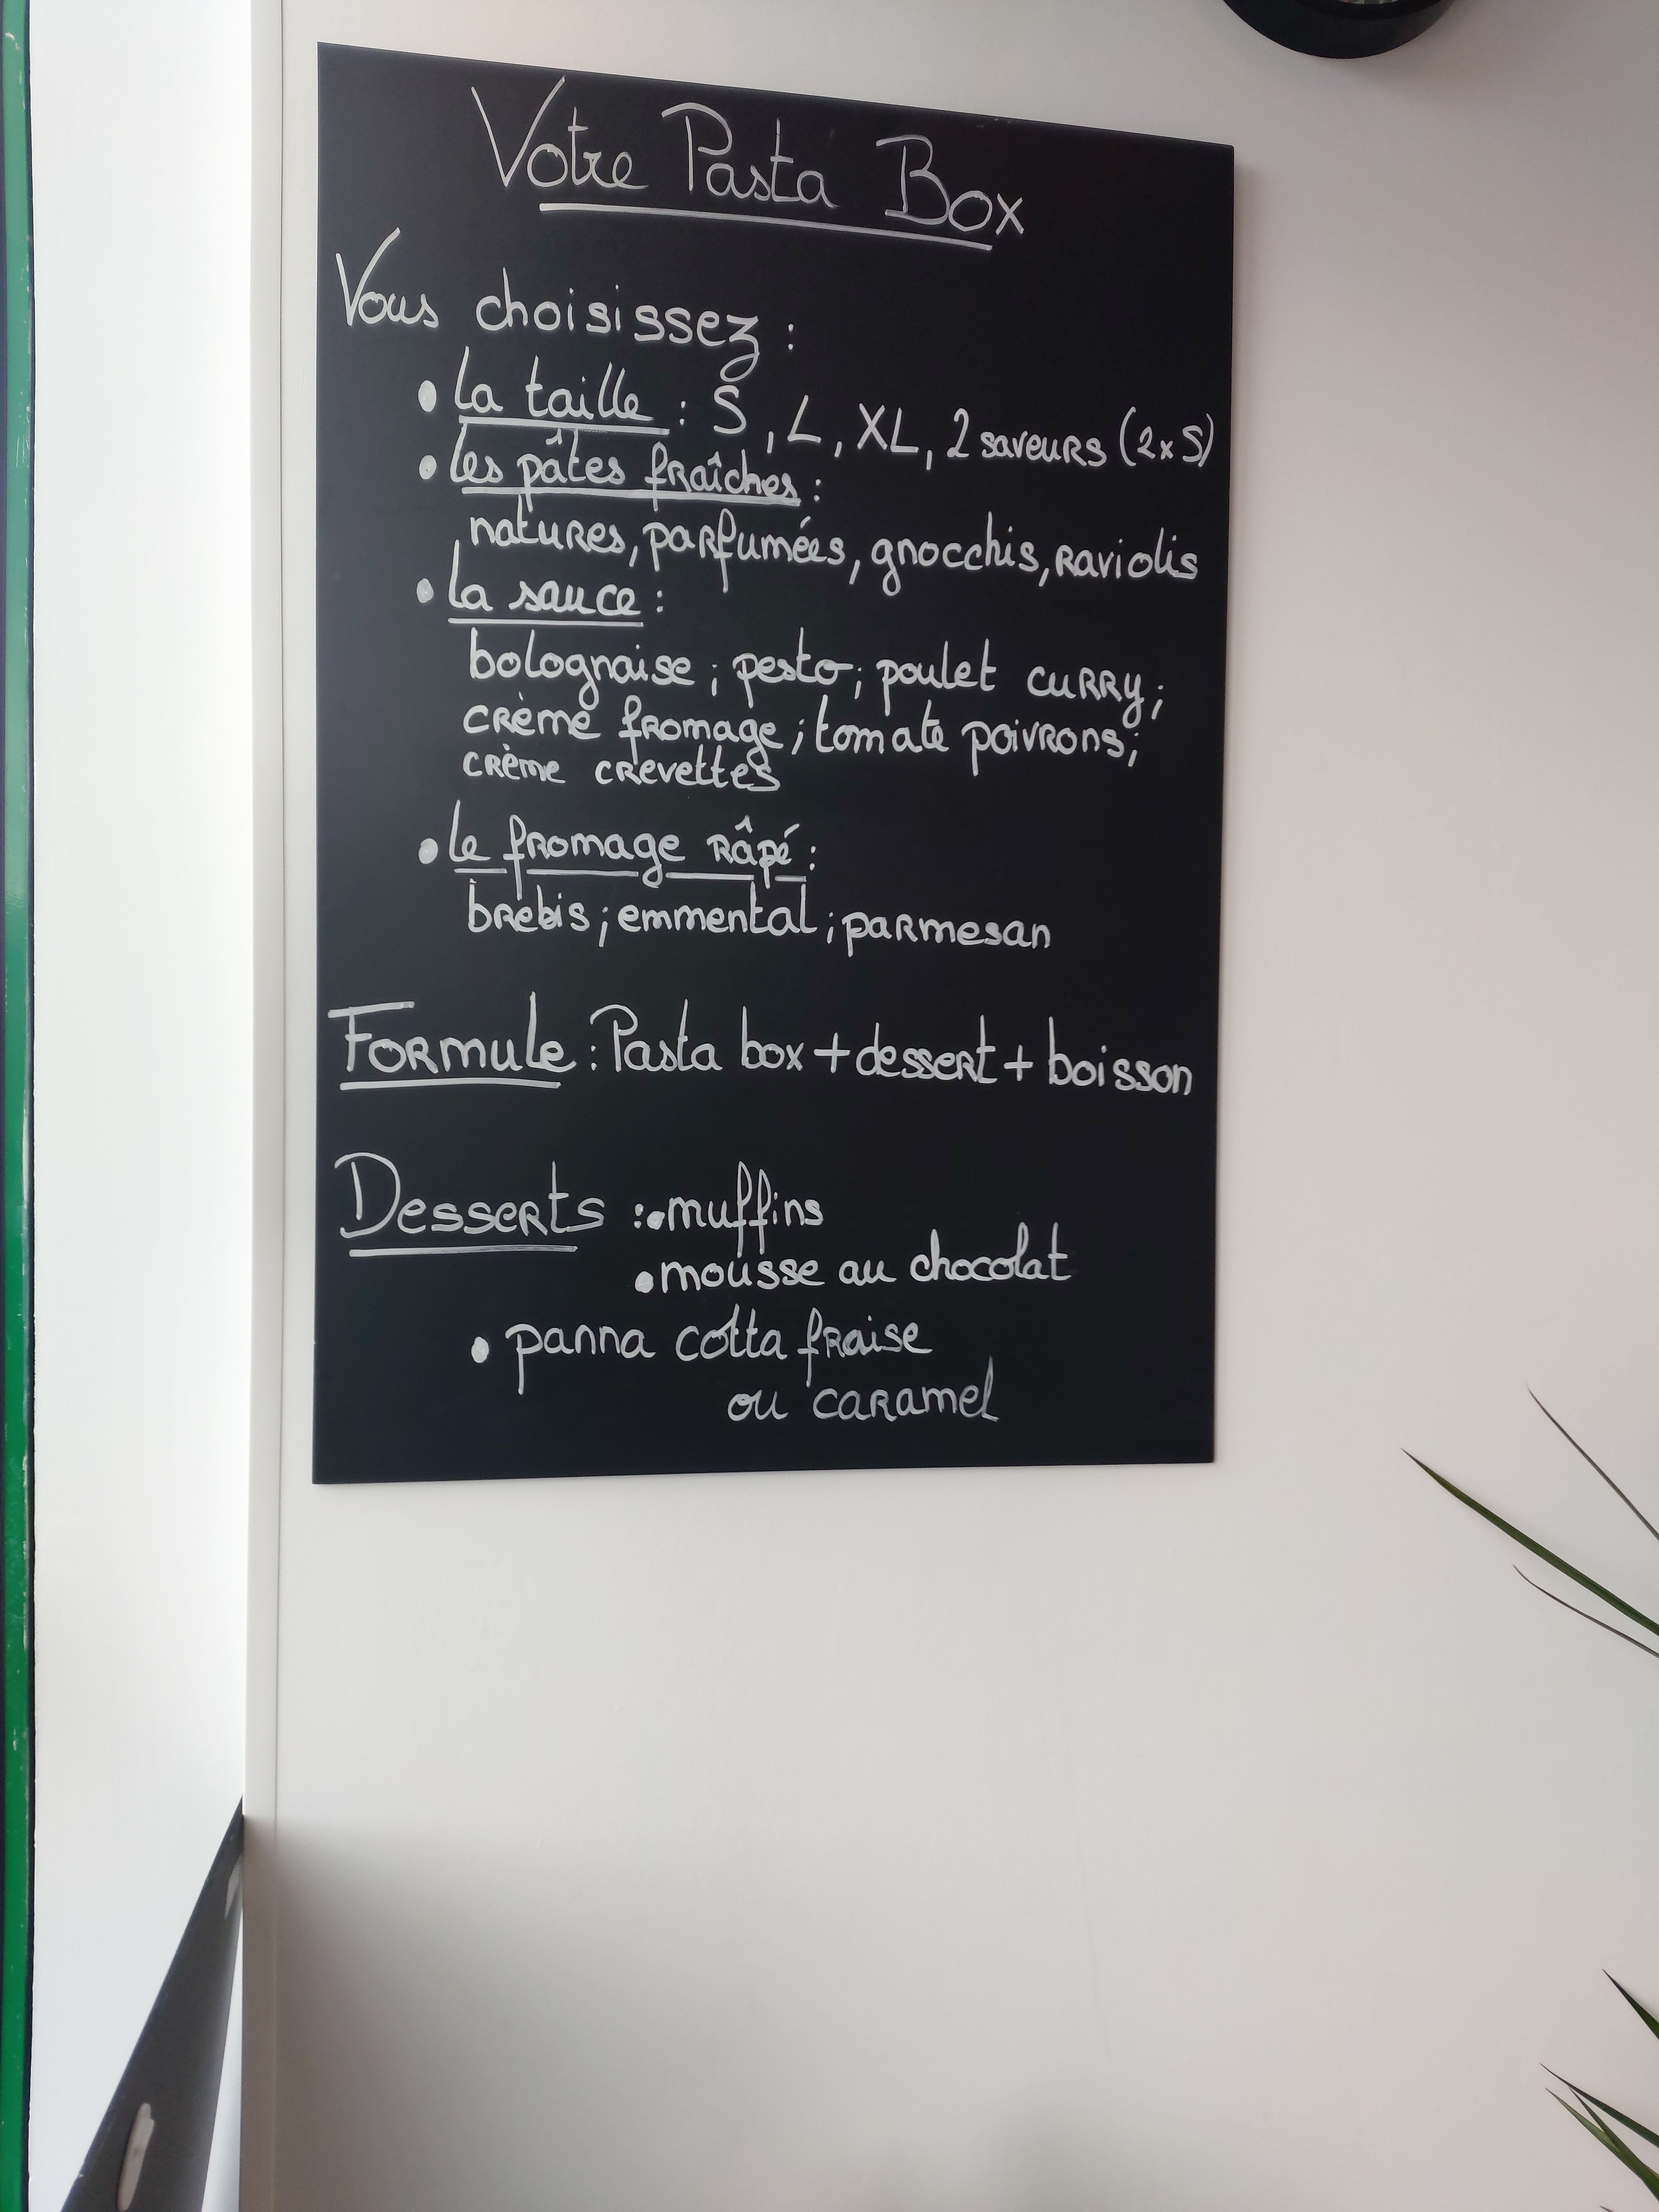 Votre Pasta Box
Vous choisissez :
• La taille : S, L, XL, 2 saveurs (2x S)
• Les pâtes fraîches :
natures, parfumées, gnocchis, raviolis
• La sauce :
bolognaise ; pesto ; poulet curry ;
crème fromage ; tomate poivrons ;
crème crevettes
• Le fromage râpé :
brebis ; emmental ; parmesan
Formule : Pasta box + dessert + boisson
Desserts : • muffins
• mousse au chocolat
• panna cotta fraise
ou caramel